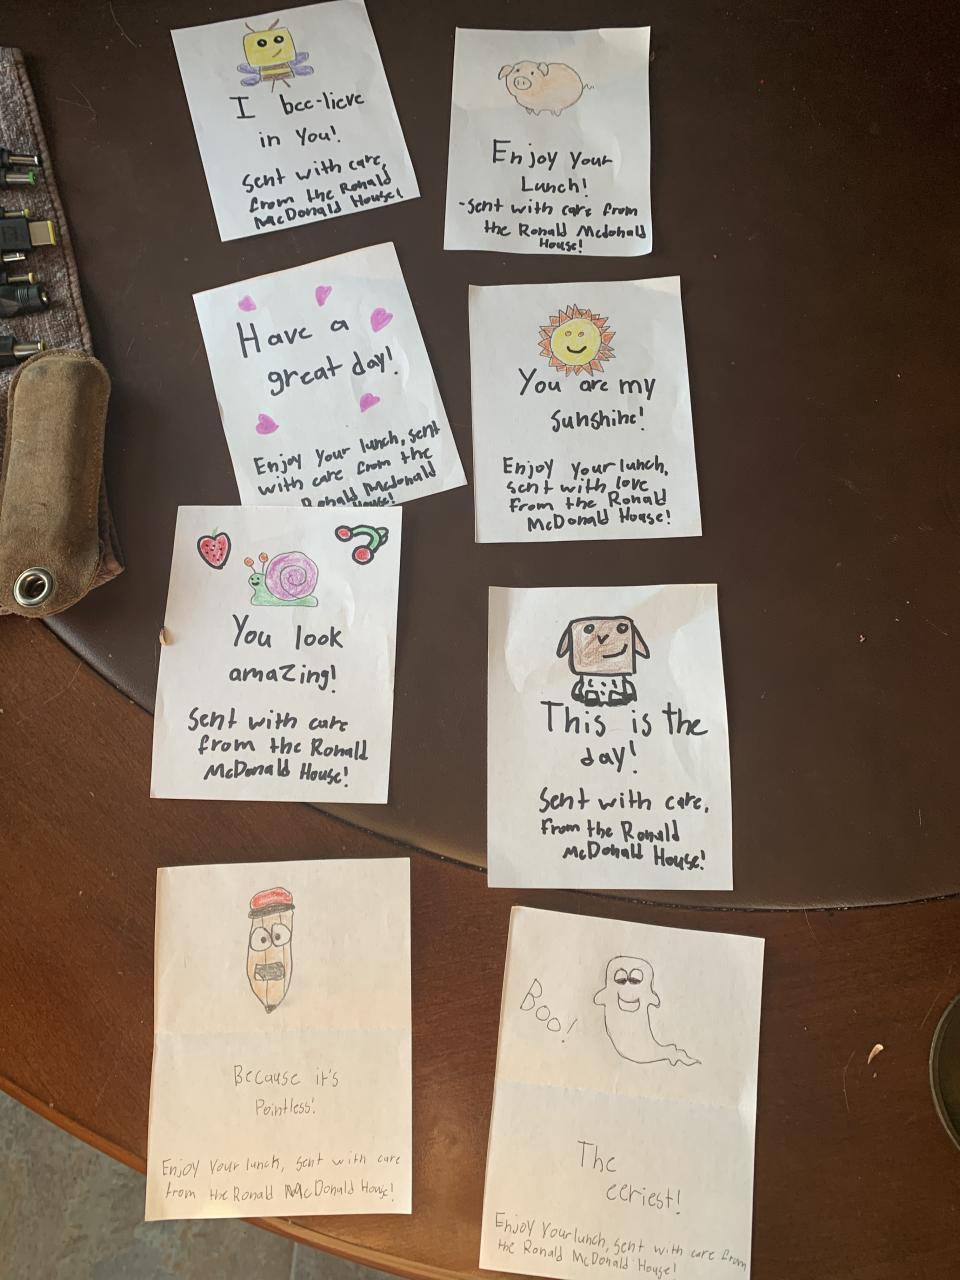 I bee-lieve
in You!
Sent with care,
from the Ronald
McDonald House!
Enjoy Your
Lunch!
-Sent with care from
the Ronald Mcdonald
House!
Have a
great day!
Enjoy Your lunch, sent
with care from the
Ronald Mcdonald
House!
You are my
sunshine!
Enjoy your lunch,
sent with love
from the Ronald
McDonald House!
You look
amazing!
Sent with care
from the Ronald
McDonald House!
This is the
day!
Sent with care,
from the Ronald
McDonald House!
Because it's
Pointless!
Enjoy Your lunch, sent with care
from the Ronald McDonald House!
Boo!
The
eeriest!
Enjoy Your lunch, sent with care from
the Ronald McDonald House!